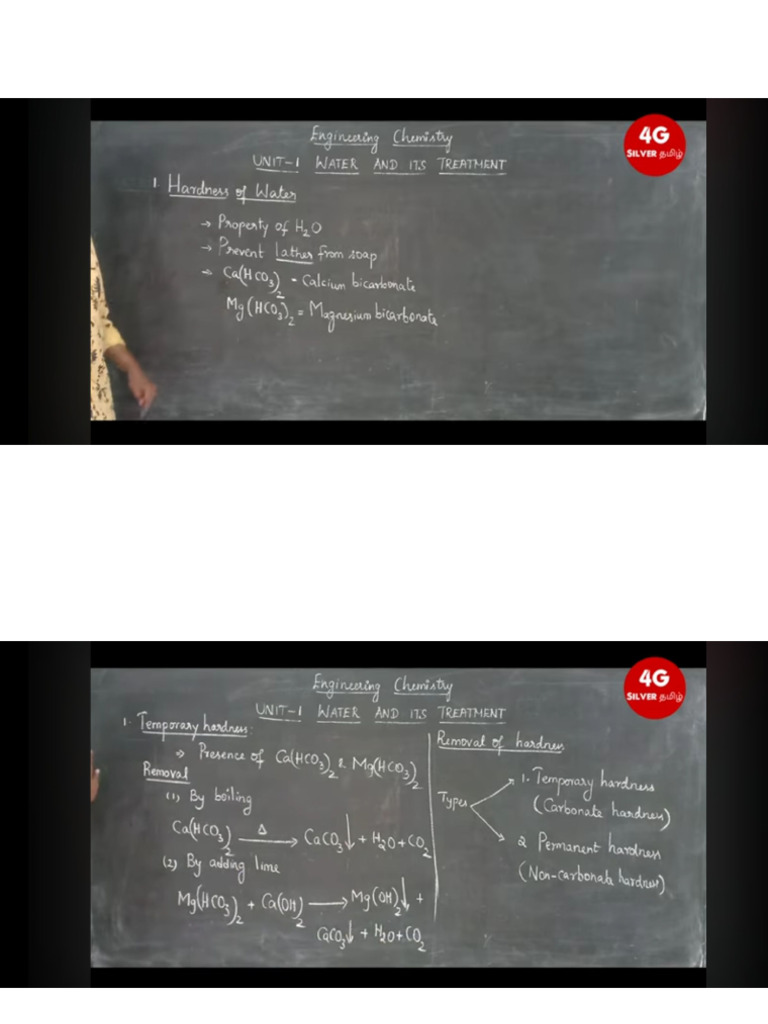 Engineering Chemistry
UNIT-1 WATER AND ITS TREATMENT
4G
SILVER தமிழ்
1. Hardness of Water
→ Property of H₂O
→ Prevent lather from soap
→ Ca(HCO₃)₂ = Calcium bicarbonate
Mg(HCO₃)₂ = Magnesium bicarbonate
Engineering Chemistry
UNIT-1 WATER AND ITS TREATMENT
4G
SILVER தமிழ்
1. Temporary hardness:
→ Presence of Ca(HCO₃)₂ & Mg(HCO₃)₂
Removal
(1) By boiling
Ca(HCO₃)₂ —Δ→ CaCO₃↓ + H₂O + CO₂
(2) By adding lime
Mg(HCO₃)₂ + Ca(OH)₂ → Mg(OH)₂↓ +
CaCO₃↓ + H₂O + CO₂
Removal of hardness
Types
1. Temporary hardness
(Carbonate hardness)
2 Permanent hardness
(Non-carbonate hardness)